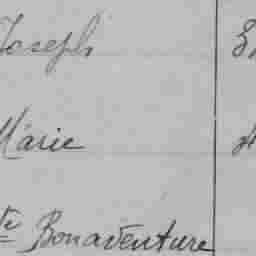 Joseph
Marie
te Bonaventure